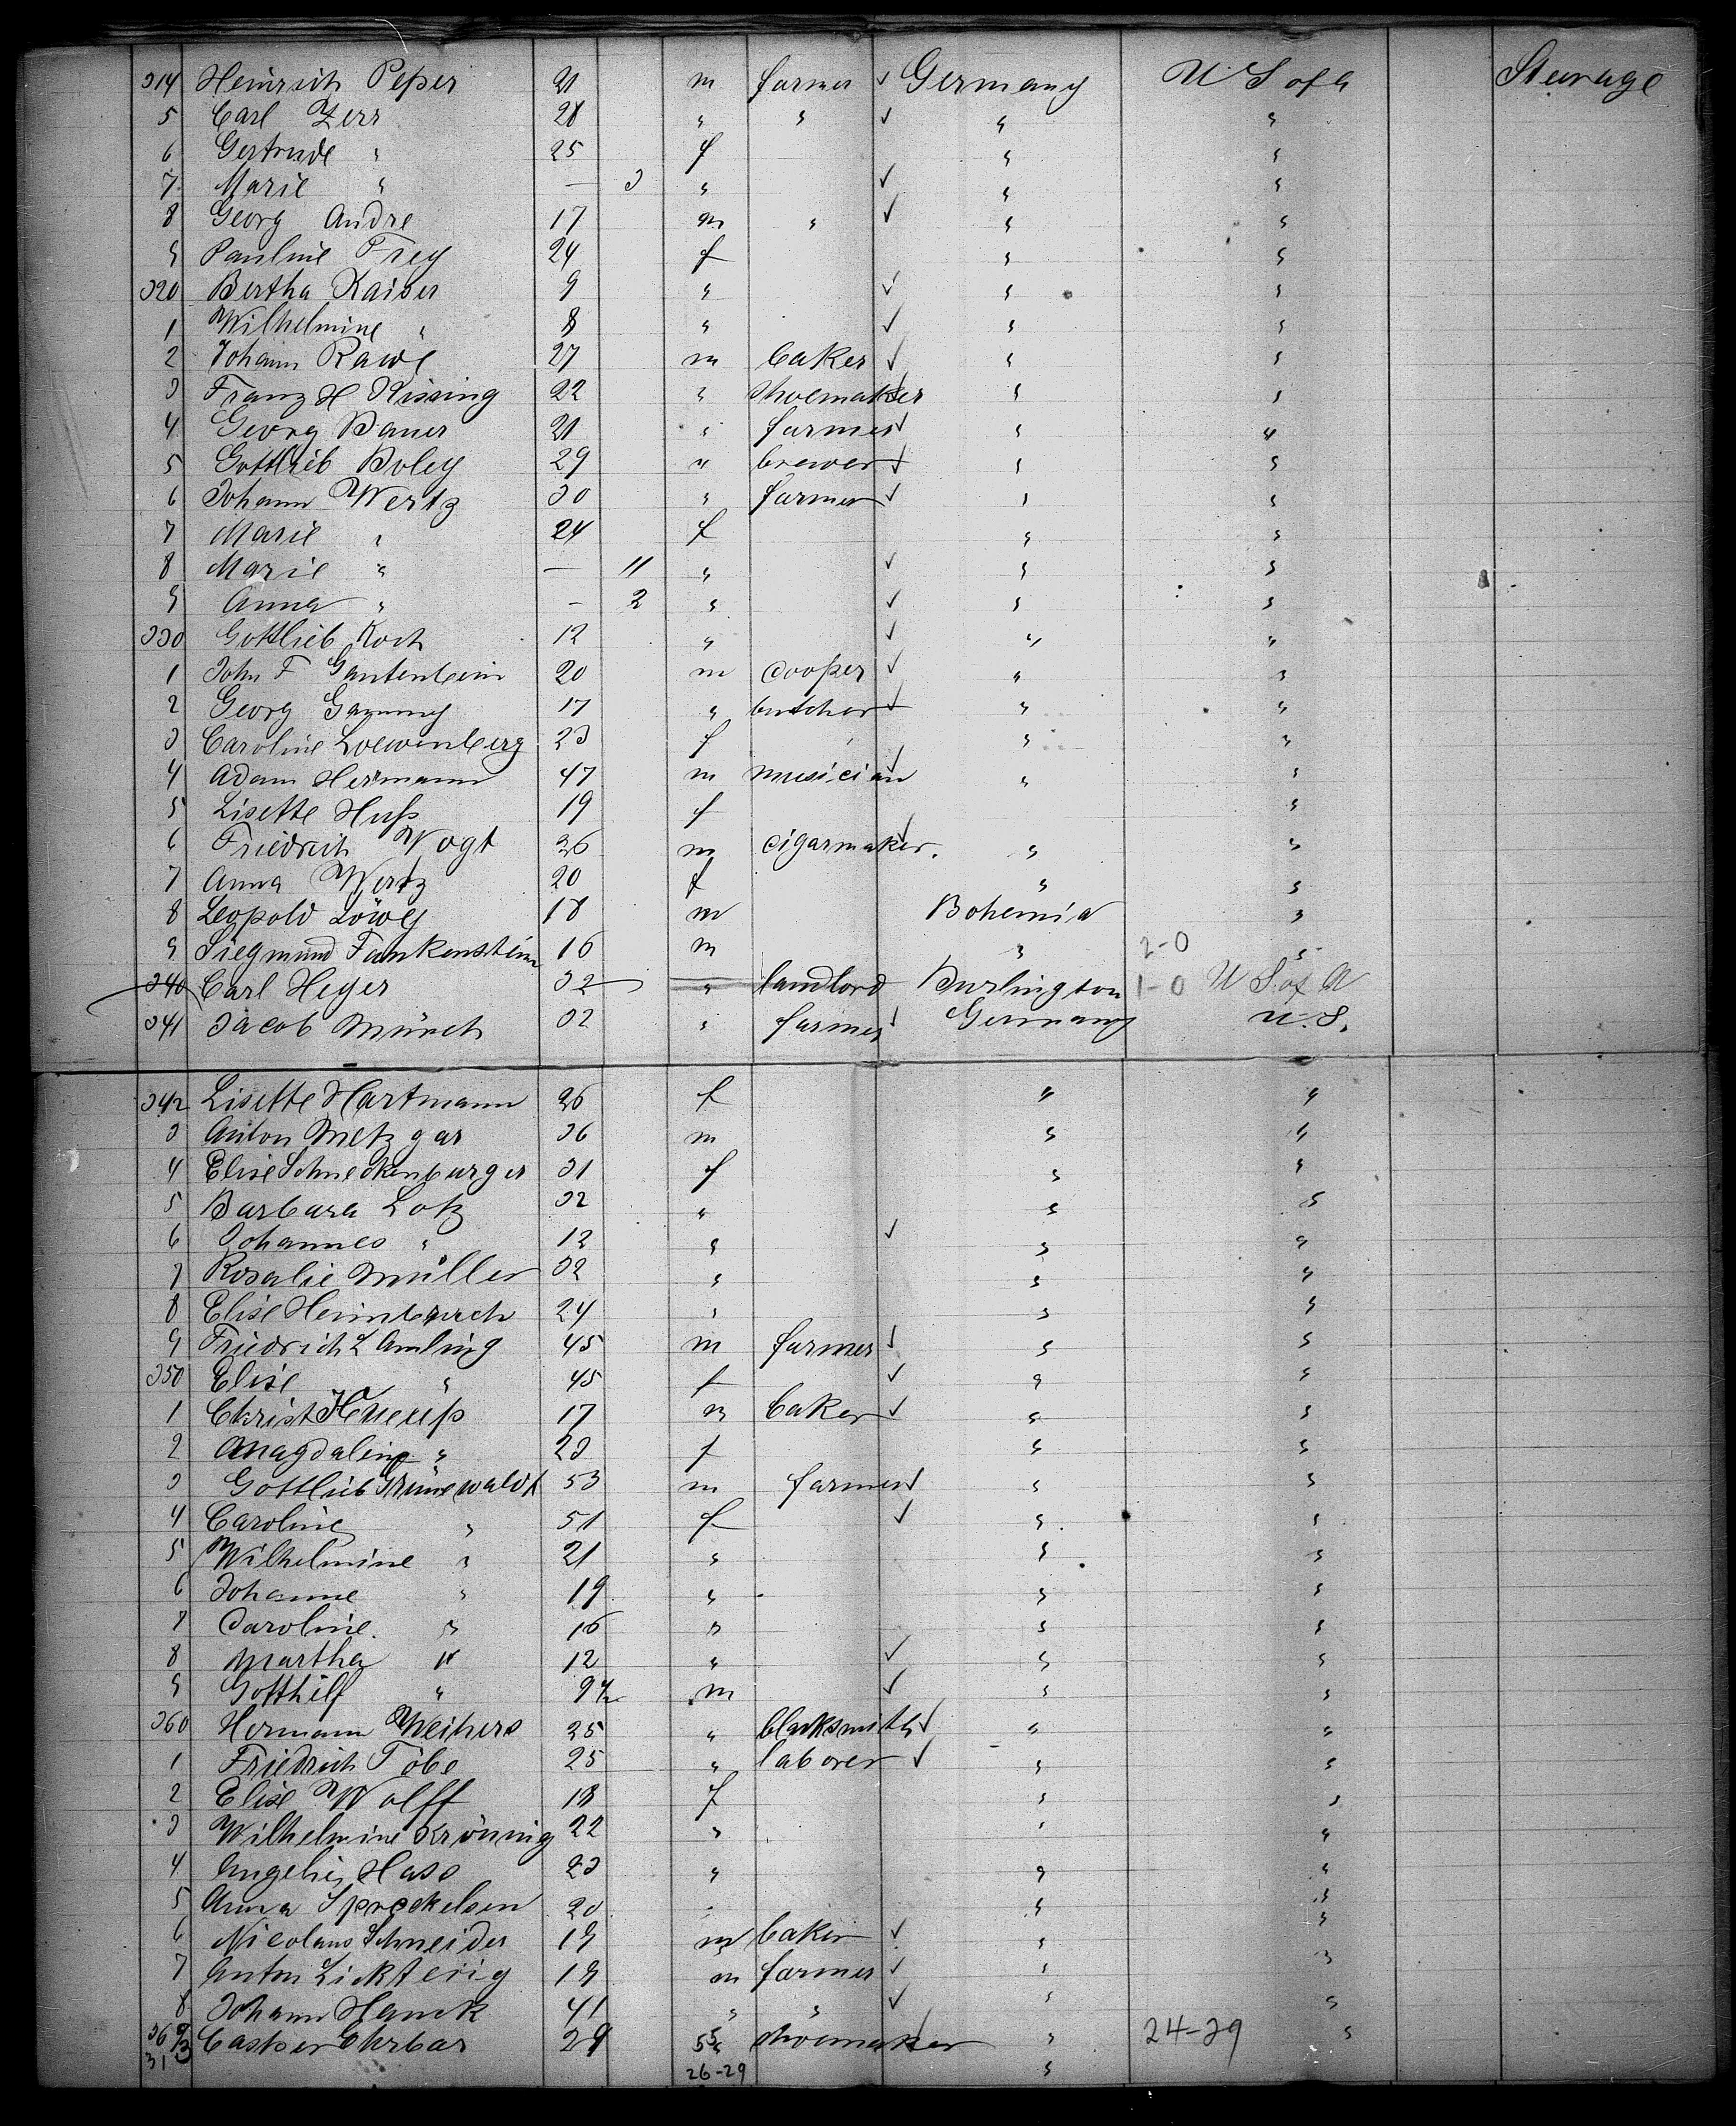 314 Heinrich Peper 21 m farmer ✓ Germany U S of A Steerage
5 Carl Zerr 28 " " ✓ " "
6 Gertrude " 25 f " "
7 Marie " — 3 " ✓ " "
8 Georg Andre 17 m " ✓ " "
9 Pauline Frey 24 f " "
320 Bertha Kaiser 9 " ✓ " "
1 Wilhelmine " 8 " ✓ " "
2 Johann Rawe 27 m baker ✓ " "
3 Franz H Kissing 22 " shoemaker ✓ " "
4 Georg Bauer 21 " farmer ✓ " "
5 Gottlieb Boley 29 " brewer ✓ " "
6 Johann Wertz 30 " farmer ✓ " "
7 Marie " 24 f " "
8 Marie " — 11 " ✓ " "
9 Anna " — 2 " ✓ " "
330 Gottlieb Koch 12 " ✓ " "
1 John F Gantenbein 20 m cooper ✓ " "
2 Georg 17 " butcher ✓ " "
3 Caroline Loewenberg 23 f " "
4 Adam Hermann 47 m musician ✓ " "
5 Lisette Huſs 19 f "
6 Friedrich Vogt 36 m cigarmaker. ✓ " "
7 Anna Wertz 20 f " "
8 Leopold Löwy 18 m Bohemia "
9 Siegmund Fankenstein 16 m " 2-0 "
340 Carl Heyer 32 " landlord Burlington 1-0 U S of A
341 Jacob Münch 32 " farmer ✓ Germany U.S.
342 Lisette Hartmann 26 f " "
3 Anton Metzgar 36 m " "
4 Elise Schneckenburger 31 f " "
5 Barbara Lotz 32 " " "
6 Johannes " 12 " ✓ " "
7 Rosalie Müller 32 " " "
8 Elise Heimbruch 24 " " "
9 Friedrich L Amling 45 m farmer ✓ " "
350 Elise " 45 f ✓ " "
1 Christ 17 m baker ✓ " "
2 Magdaline " 23 f " "
3 Gottlieb Grünewaldt 53 m farmer ✓ " "
4 Caroline " 51 f ✓ " "
5 Wilhelmine " 21 " " "
6 Johanne " 19 " " "
7 Caroline. " 16 " " "
8 Martha " 12 " ✓ " "
9 Gotthilf " 9½ m ✓ " "
360 Hermann Weihers 25 " blacksmith ✓ " "
1 Friedrich Töbe 25 " laborer ✓ " "
2 Elise Wolff 18 f " "
3 Wilhelmine Kröning 22 " " "
4 Hass 23 " " "
5 Anna Spreckelsen 20 " " "
6 Nicolaus Schneider 19 m baker ✓ " "
7 Anton Lickterig 19 m farmer ✓ " "
8 Johann Hanck 41 " " ✓ " "
369 Casper Ehrbar 29 55 shoemaker ✓ " 24-29 "
313 26-29 "